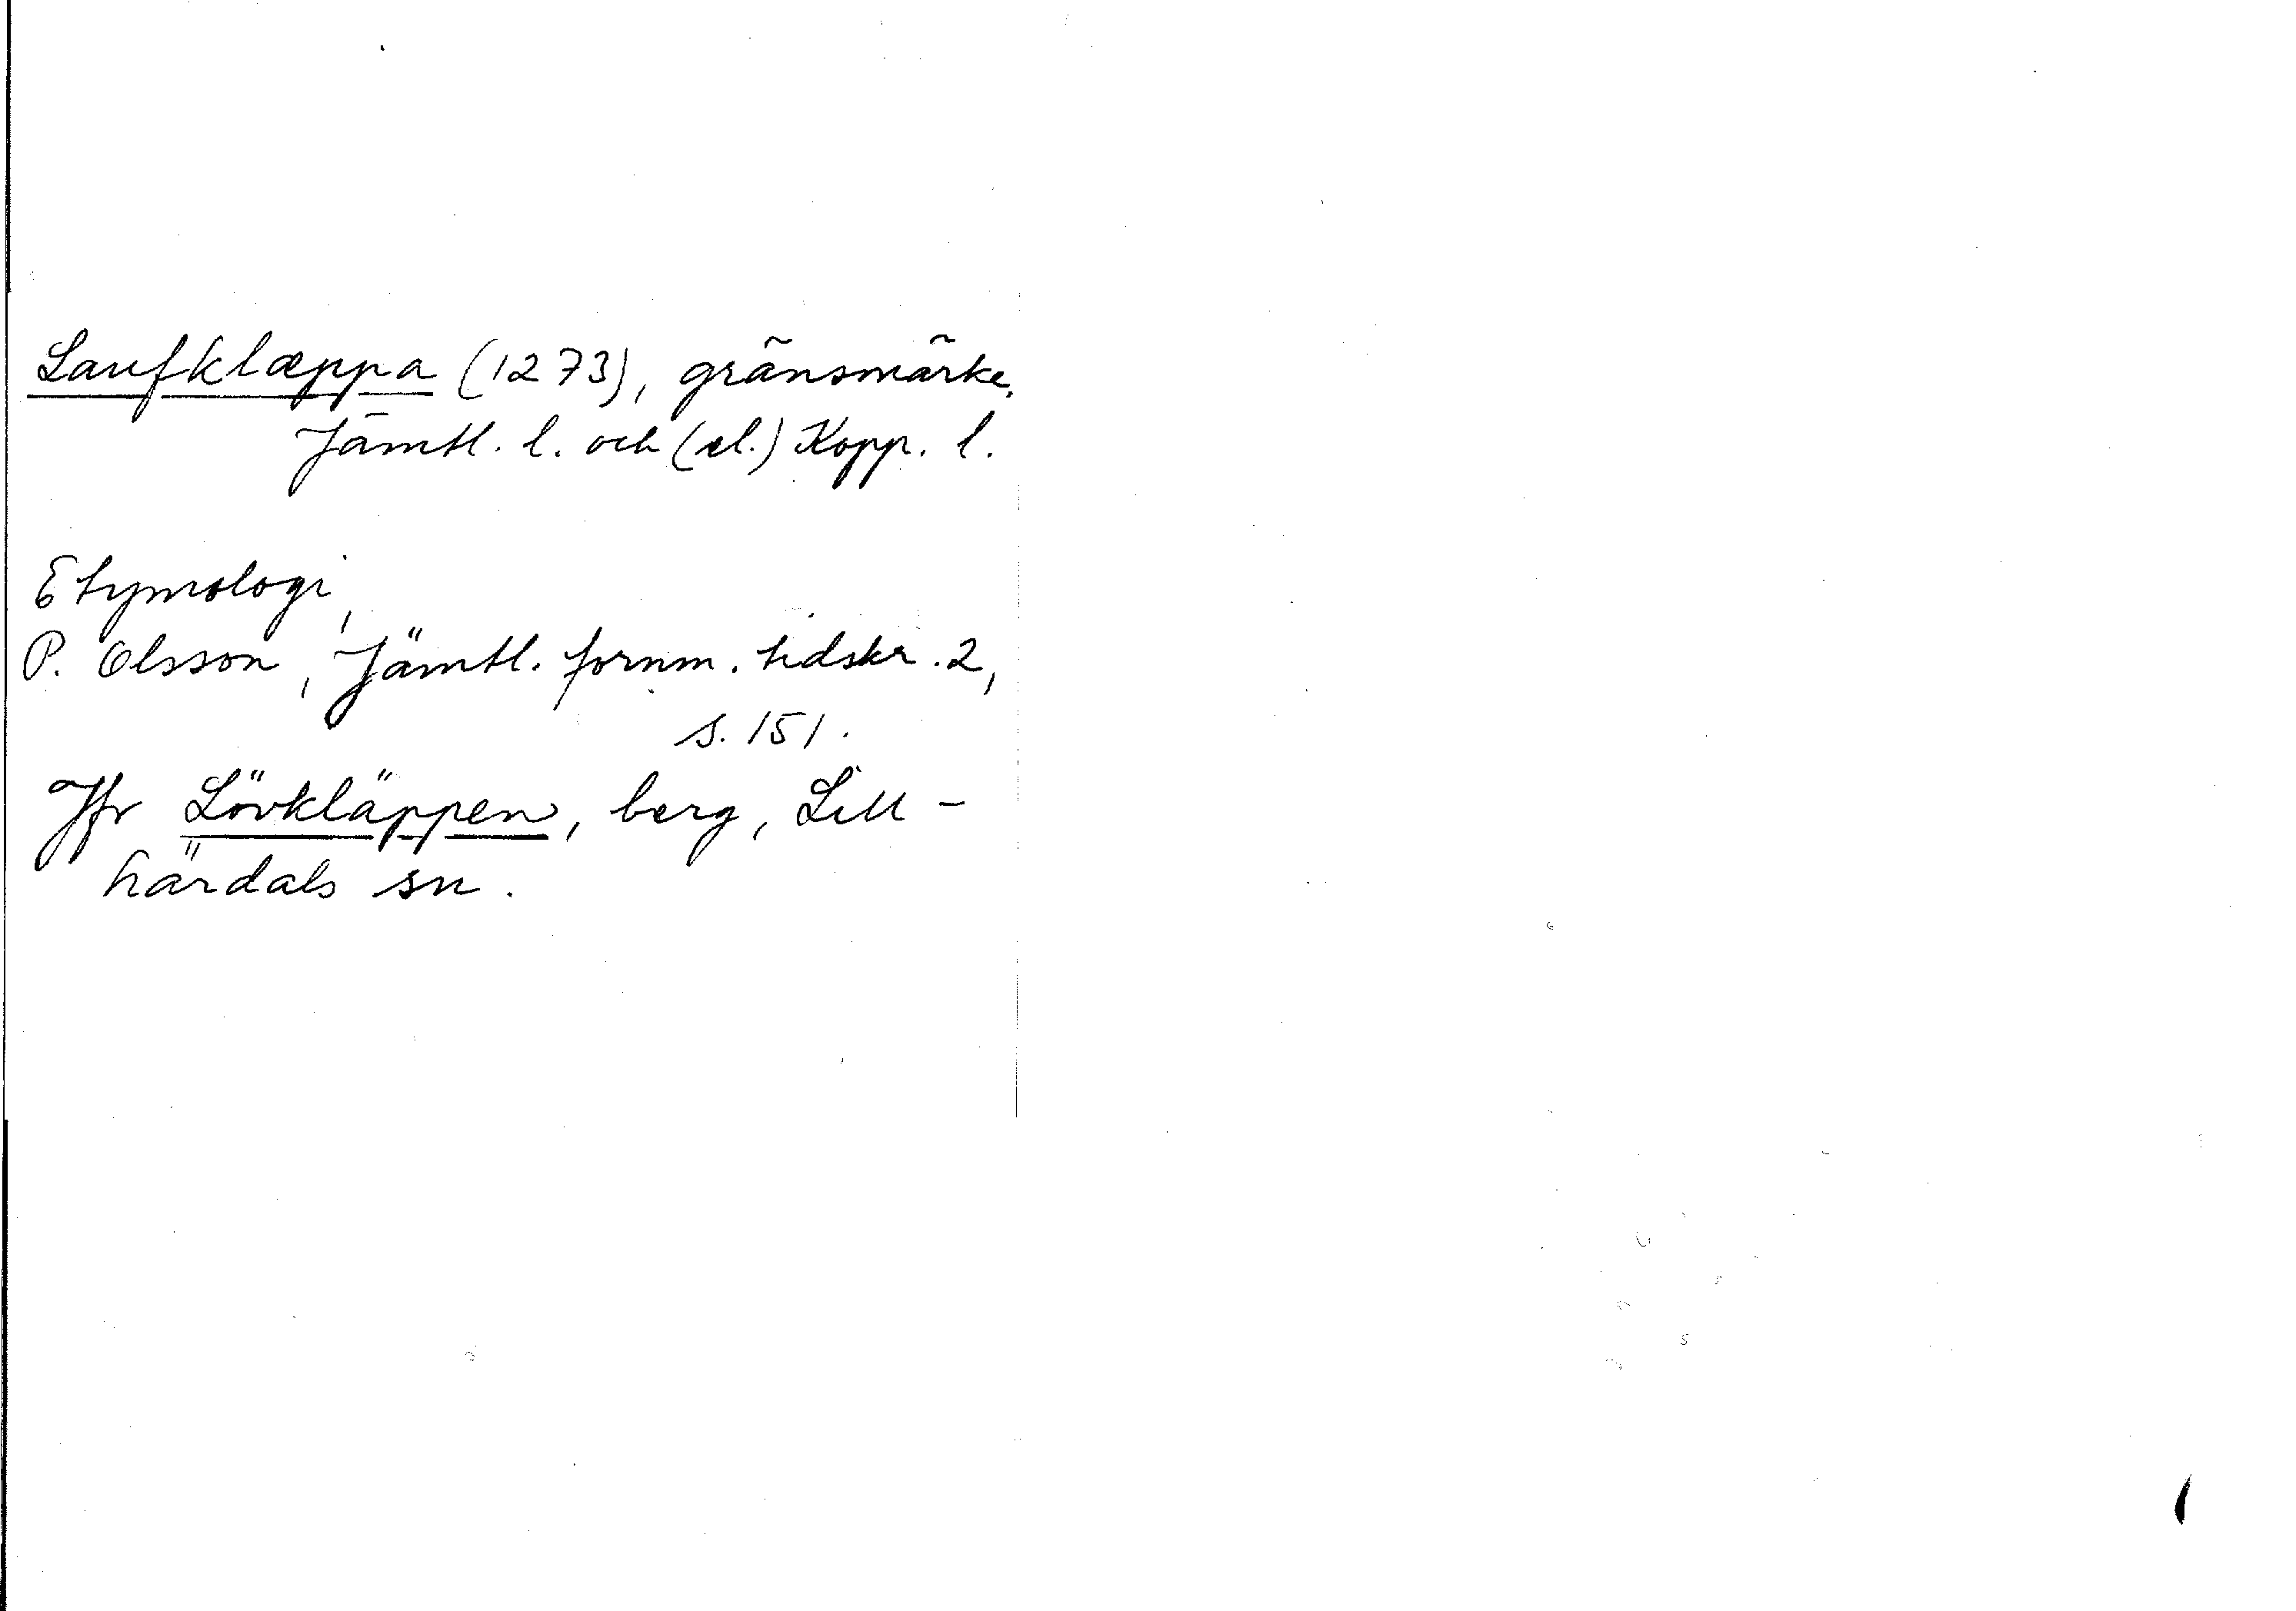 Laufklæppa (1273), gränsmärke,
Jämtl. l. och (el.) Kopp. l.
Etymologi,
P. Olsson, Jämtl. fornm. tidskr. 2,
s. 151.
Jfr Lövkläppen, berg, Lill-
härdals sn.